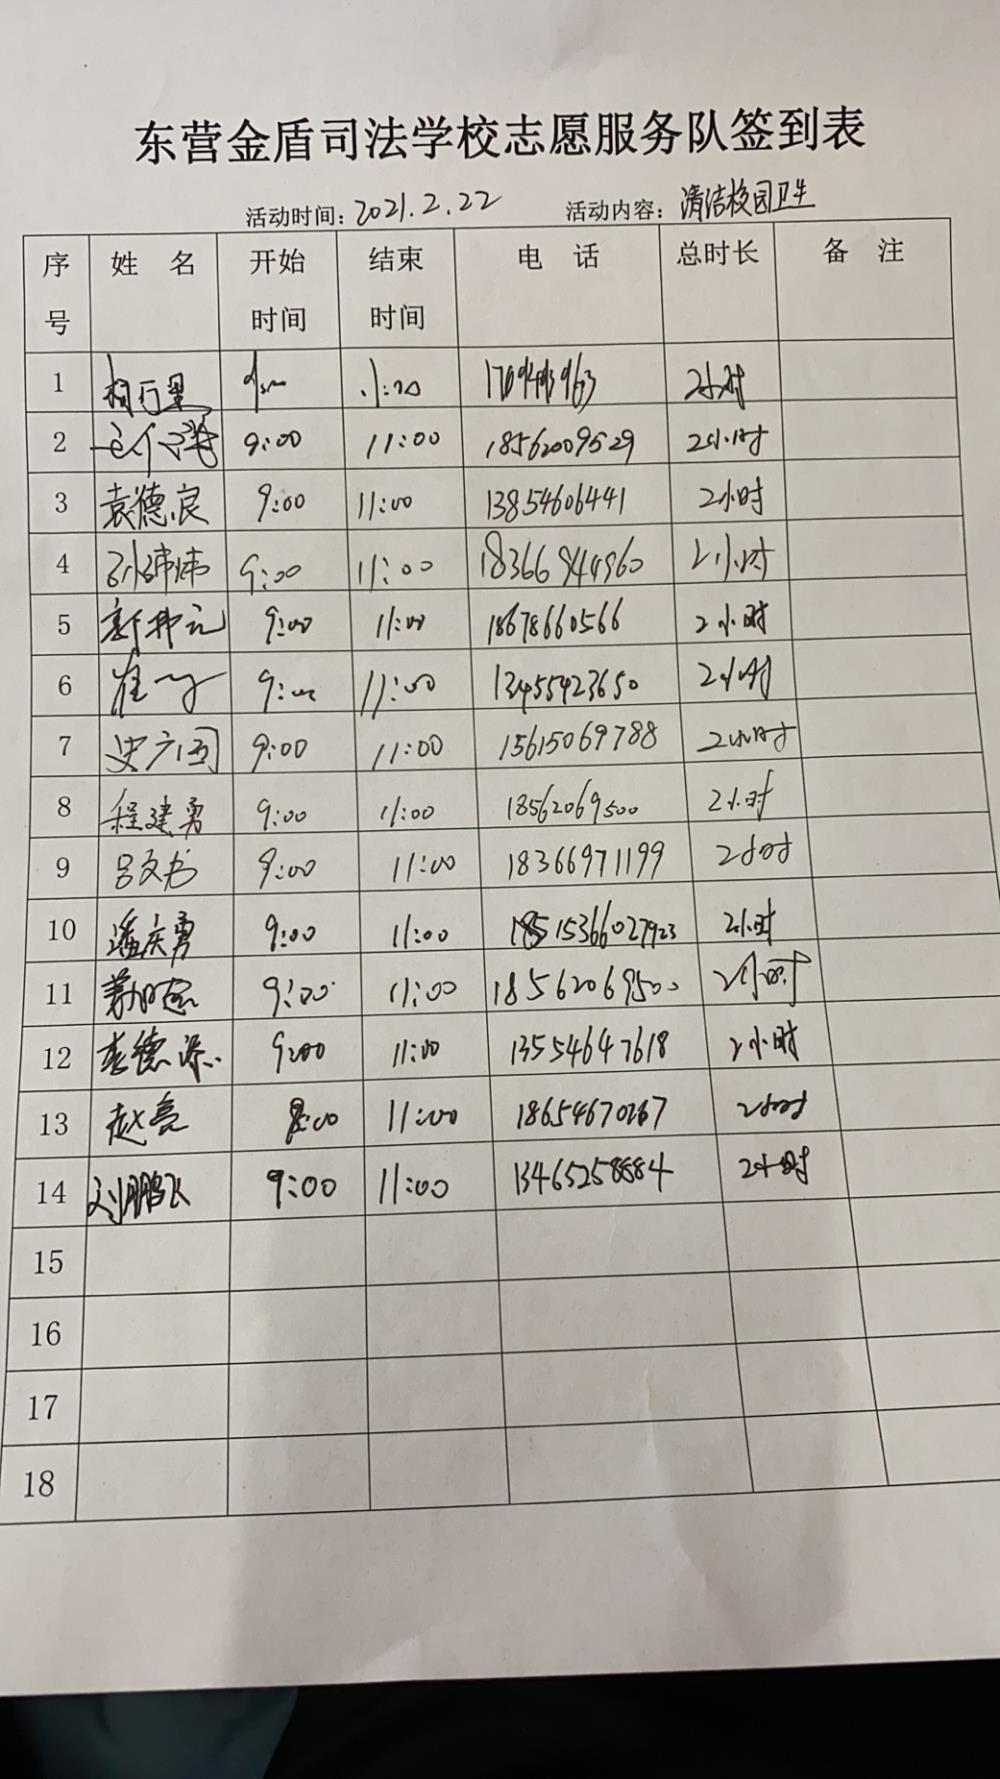 东营金盾司法学校志愿服务队签到表
活动时间：2021.2.22 活动内容：清洁校园卫生
序号 姓 名 开始时间 结束时间 电 话 总时长 备 注
1 2小时
2 9:00 11:00 18562009529 2小时
3 袁德良 9:00 11:00 13854606441 2小时
4 9:00 11:00 18366944960 2小时
5 9:00 11:00 18678660566 2小时
6 9:00 11:00 13455423650 2小时
7 史广国 9:00 11:00 15615069788 2小时
8 程建勇 9:00 11:00 18562069500 2小时
9 吕文书 9:00 11:00 18366971199 2小时
10 潘庆勇 9:00 11:00 15366027923 2小时
11 9:00 11:00 18562069500 2小时
12 9:00 11:00 13554647618 2小时
13 赵亮 11:00 2小时
14 刘鹏飞 9:00 11:00 2小时
15
16
17
18